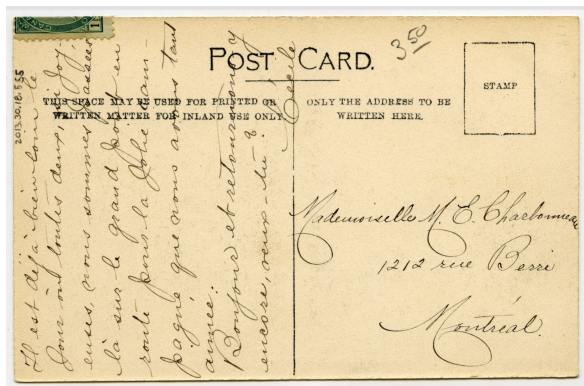 POST CARD.
3 50
STAMP
THIS SPACE MAY BE USED FOR PRINTED OR
WRITTEN MATTER FOR INLAND USE ONLY
ONLY THE ADDRESS TO BE
WRITTEN HERE.
2013.30.18.555
Il est déjà bien loin le
jour où toutes deux, si joy-
euses, nous sommes passées
là sur le grand pont en
route pour la jolie cam-
pagne que nous avons tant
aimée.
Bonjour et retournons-y
encore, veux-tu?
Cécile
Mademoiselle M. E. Charbonneau
1212 rue Berri
Montréal.